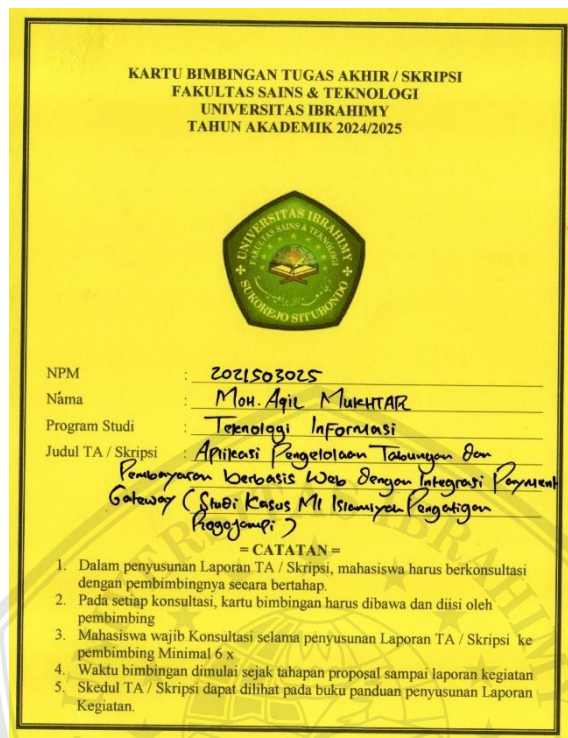 KARTU BIMBINGAN TUGAS AKHIR / SKRIPSI
FAKULTAS SAINS & TEKNOLOGI
UNIVERSITAS IBRAHIMY
TAHUN AKADEMIK 2024/2025
UNIVERSITAS IBRAHIMY
FAKULTAS SAINS & TEKNOLOGI
SUKOREJO SITUBONDO
NPM : 2021503025
Nama : MOH. AQIL MUKHTAR
Program Studi : Teknologi Informasi
Judul TA / Skripsi : Aplikasi Pengelolaan Tabungan dan
Pembayaran berbasis Web dengan Integrasi Payment
Gateway (Studi Kasus MI Islamiyah Pengatigan
Rogojampi)
= CATATAN =
1. Dalam penyusunan Laporan TA / Skripsi, mahasiswa harus berkonsultasi
dengan pembimbingnya secara bertahap.
2. Pada setiap konsultasi, kartu bimbingan harus dibawa dan diisi oleh
pembimbing
3. Mahasiswa wajib Konsultasi selama penyusunan Laporan TA / Skripsi ke
pembimbing Minimal 6 x
4. Waktu bimbingan dimulai sejak tahapan proposal sampai laporan kegiatan
5. Skedul TA / Skripsi dapat dilihat pada buku panduan penyusunan Laporan
Kegiatan.